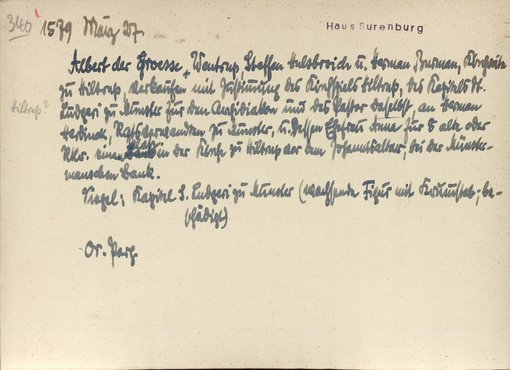 340 1579 März 27. Haus Surenburg
Albert der Groesse, Wentrup, Steffen Hulsbroich u. Herman Burman, Kirchräte
zu Hiltrup, verkaufen mit Zustimmung des Kirchspiels Hiltrup, des Kapitels St.
Hiltrup?
Ludgeri zu Münster für den Archidiakon und des Pastor daselbst an Herman
Herdinck, Ratsverwandten zu Münster, u. dessen Ehefrau Anna für 5 alte
Rtlr. einen in der Kirche zu Hiltrup vor dem Johannesaltar, bei der Münster-
manschen Bank.
Siegel: Kapitel S. Ludgeri zu Münster (wachsende Figur mit Krummstab; be-
schädigt)
Or. Perg.